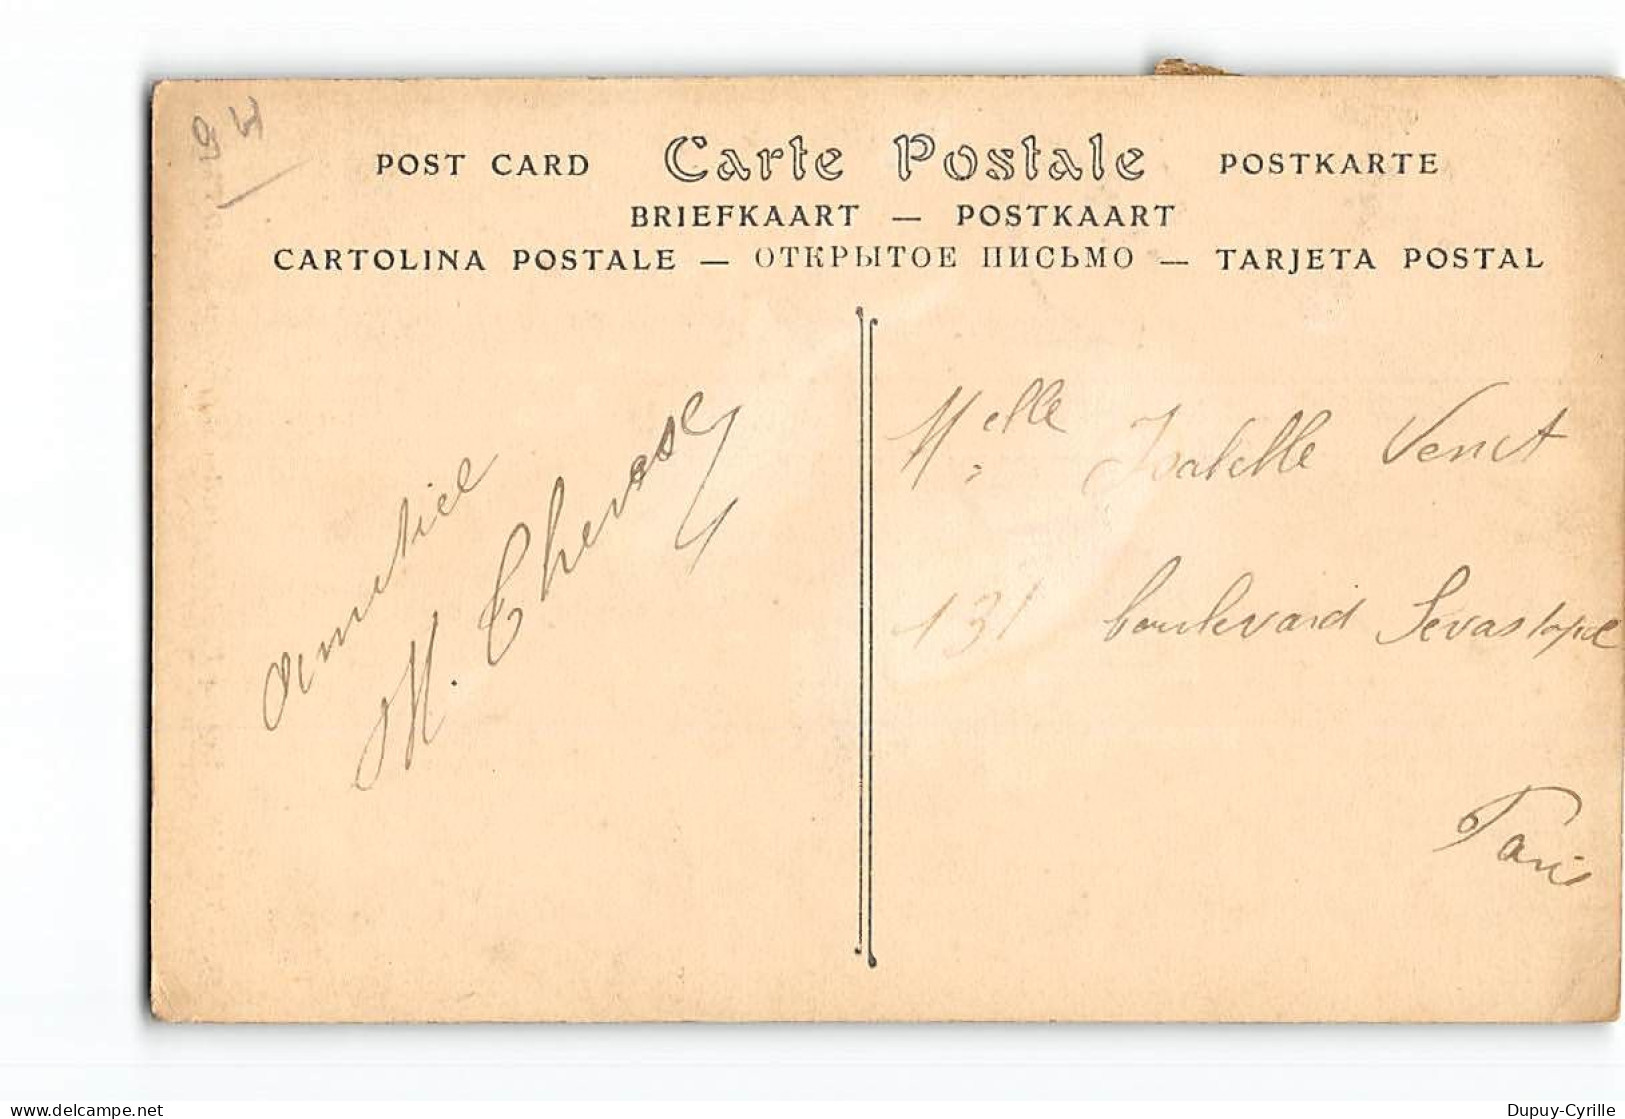 94
POST CARD Carte Postale POSTKARTE
BRIEFKAART — POSTKAART
CARTOLINA POSTALE — ОТКРЫТОЕ ПИСЬМО — TARJETA POSTAL
M.
Melle Isabelle Venet
131 boulevard Sevastopol
Paris
www.delcampe.net
Dupuy-Cyrille